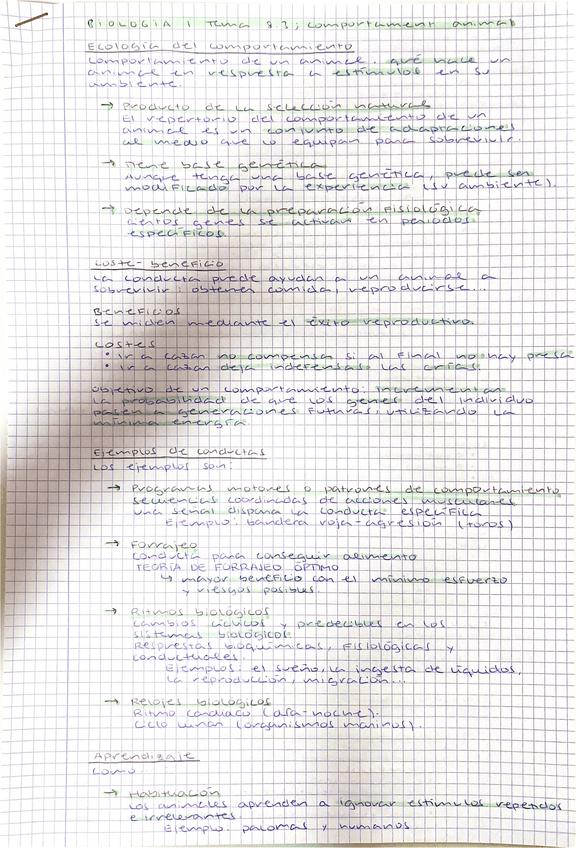 BIOLOGÍA I Tema 8.3; comportament animal
Ecología del comportamiento
Comportamiento de un animal: qué hace un
animal en respuesta a estímulos en su
ambiente.
→ Producto de la selección natural
El repertorio del comportamiento de un
animal es un conjunto de adaptaciones
al medio que lo equipan para sobrevivir.
→ Tiene base genética
Aunque tenga una base genética, puede ser
modificado por la experiencia (su ambiente).
→ Depende de la preparación fisiológica
ciertos genes se activan en periodos
específicos.
Coste-beneficio
La conducta puede ayudar a un animal a
sobrevivir: obtener comida, reproducirse...
Beneficios
Se miden mediante el éxito reproductivo.
Costes
• Ir a cazar no compensa si al final no hay presa
• Ir a cazar deja indefensas las crías.
Objetivo de un comportamiento: incrementar
la probabilidad de que los genes del individuo
pasen a generaciones futuras, utilizando la
mínima energía
Ejemplos de conductas
Los ejemplos son:
→ Programas motores o patrones de comportamiento
secuencias coordinadas de acciones musculares
una señal dispara la conducta específica
Ejemplo: bandera roja-agresión (toros)
→ Forrajeo
Conducta para conseguir alimento
TEORÍA DE FORRAJEO ÓPTIMO
↳ mayor beneficio con el mínimo esfuerzo
y riesgos posibles.
→ Ritmos biológicos
Cambios cíclicos y predecibles en los
sistemas biológicos.
Respuestas bioquímicas, fisiológicas y
conductuales.
Ejemplos: el sueño, la ingesta de líquidos,
la reproducción, migración...
→ Relojes biológicos
Ritmo cardiaco (día-noche).
Ciclo lunar (organismos marinos).
Aprendizaje
Como
→ Habituación
Los animales aprenden a ignorar estímulos repetidos
e irrelevantes.
Ejemplo: palomas y humanos